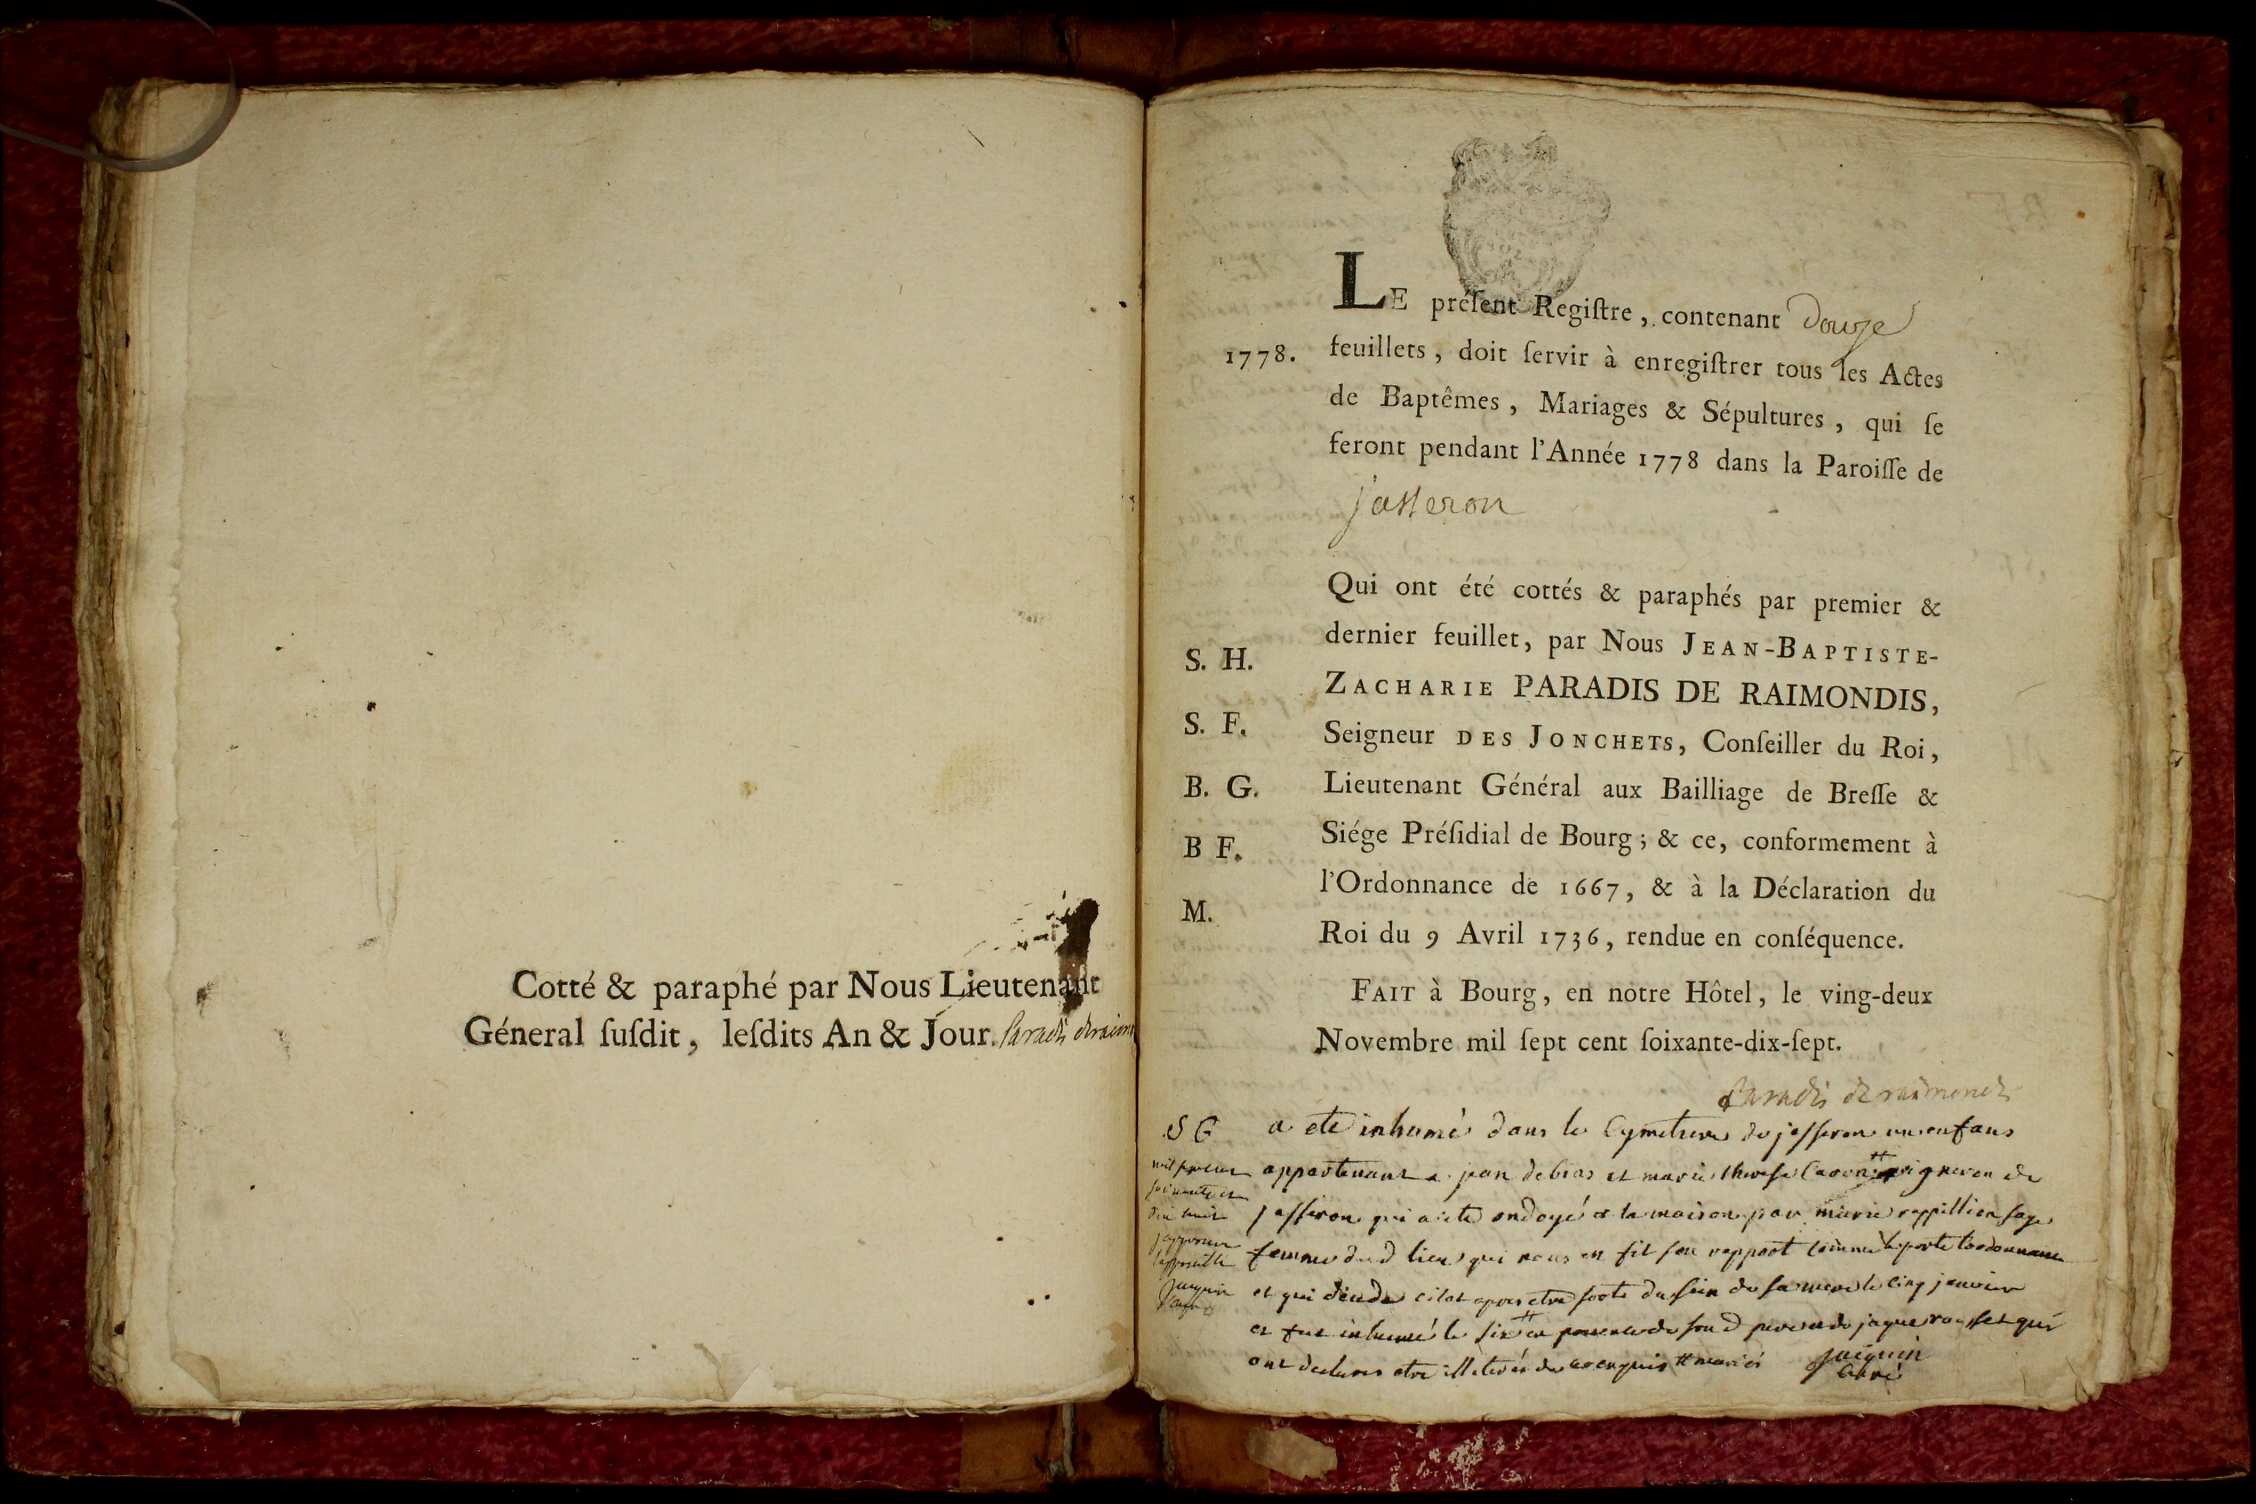 Cotté & paraphé par Nous Lieutenant
Géneral ſuſdit, leſdits An & Jour. Paradis deraimon
LE préſent Regiſtre, contenant Douze
1778.
feuillets, doit ſervir à enregiſtrer tous les Actes
de Baptêmes, Mariages & Sépultures, qui ſe
feront pendant l'Année 1778 dans la Paroiſſe de
jasseron
Qui ont été cottés & paraphés par premier &
dernier feuillet, par Nous JEAN-BAPTISTE-
S. H.
ZACHARIE PARADIS DE RAIMONDIS,
S. F.
Seigneur DES JONCHETS, Conſeiller du Roi,
B. G.
Lieutenant Général aux Bailliage de Breſſe &
B F.
Siége Préſidial de Bourg; & ce, conformement à
l'Ordonnance de 1667, & à la Déclaration du
M.
Roi du 9 Avril 1736, rendue en conſéquence.
FAIT à Bourg, en notre Hôtel, le ving-deux
Novembre mil ſept cent ſoixante-dix-ſept.
Paradis de raimondis
S G
a eté inhumé dans le Cymetiere de jasseron un enfans
appartenant a jean debias et marie therese vigneron de
jasseron qui a eté ondoyé a la maison par marie sage
femme dud lieu qui nous en fit son rapport comme le porte l'ordonnance
et qui deceda apres etre sorti du sein de sa mere le cinq janvier
et fut inhumé le six en presence de son d pere et de jaque rousset qui
ont declarés etre illiterés de ce enquis mariés
jacquin
curé
mil sept cent
soixante et
dix huit
j'approuve
l'apostille
jacquin
curé